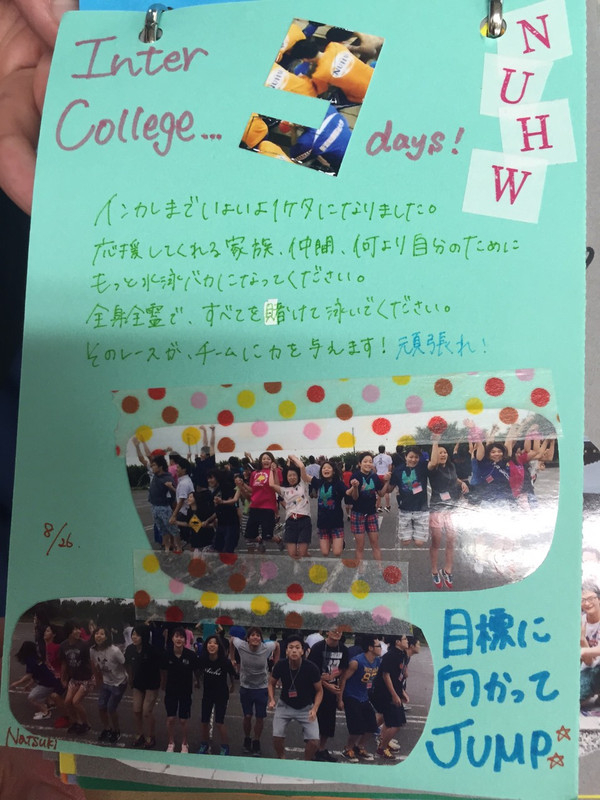 Inter
College... 9 days!
NUHW
インカレまでいよいよ1ケタになりました。
応援してくれる家族、仲間、何より自分のために
もっと水泳バカになってください。
全身全霊で、すべてを賭けて泳いでください。
そのレースが、チームに力を与えます！頑張れ！
8/26.
目標に
向かって
JUMP☆☆
Natsuki